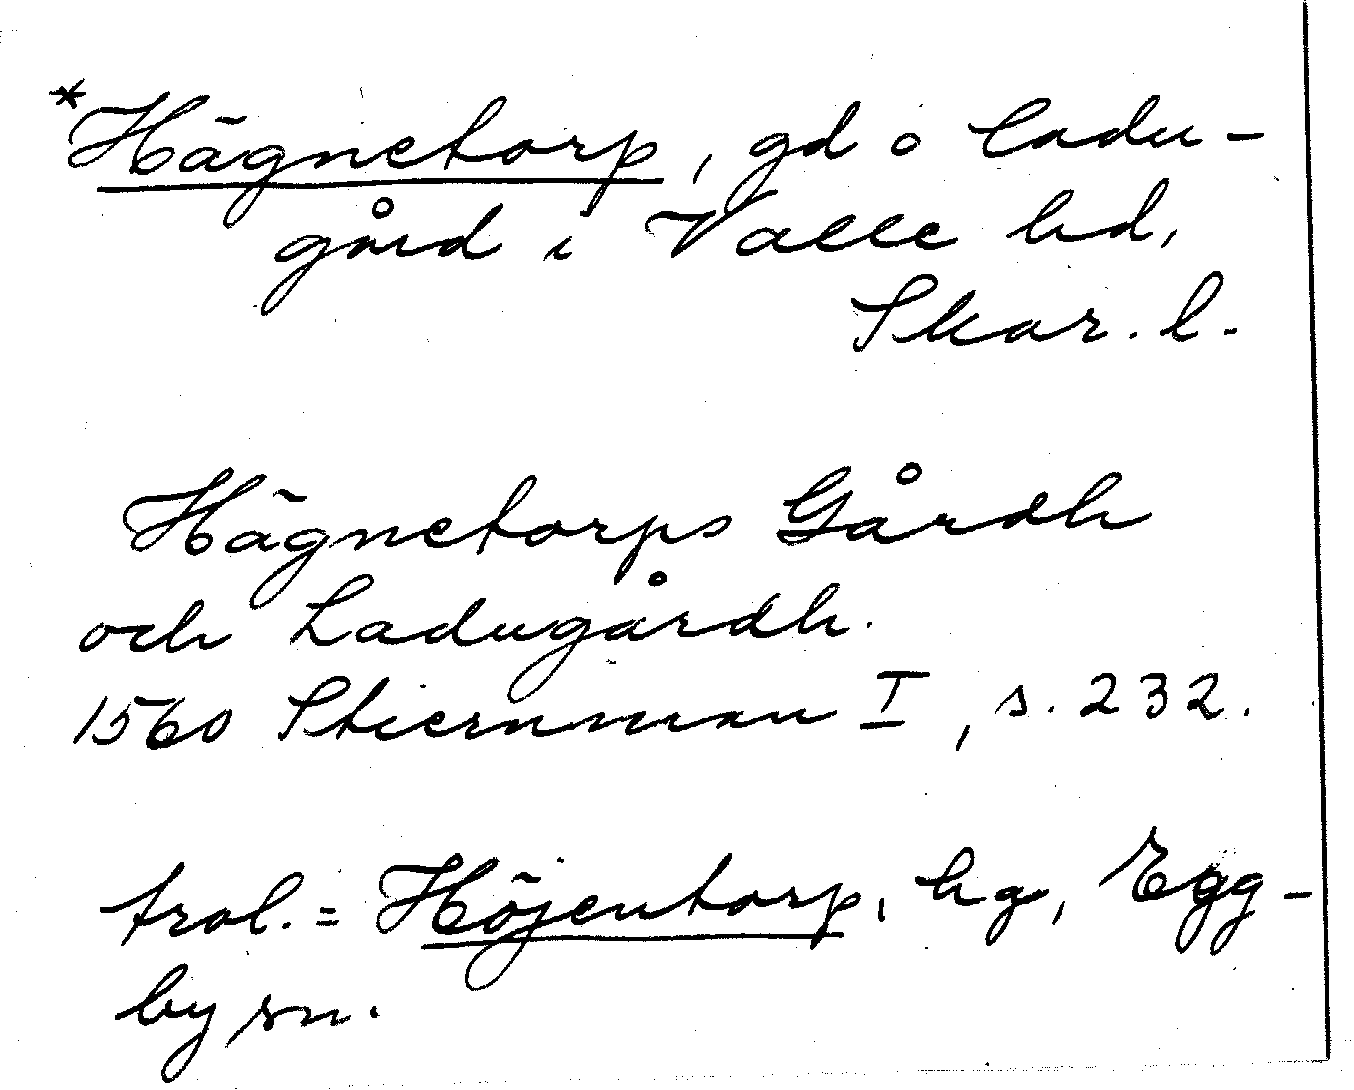 *Hägnetorp, gd o ladu-
gård i Valle hd,
Skar. l.
Hägnetorps Gårdh
och Ladugårdh.
1560 Stiernman I, s. 232.
trol. = Höjentorp, hg, Egg-
by sn.